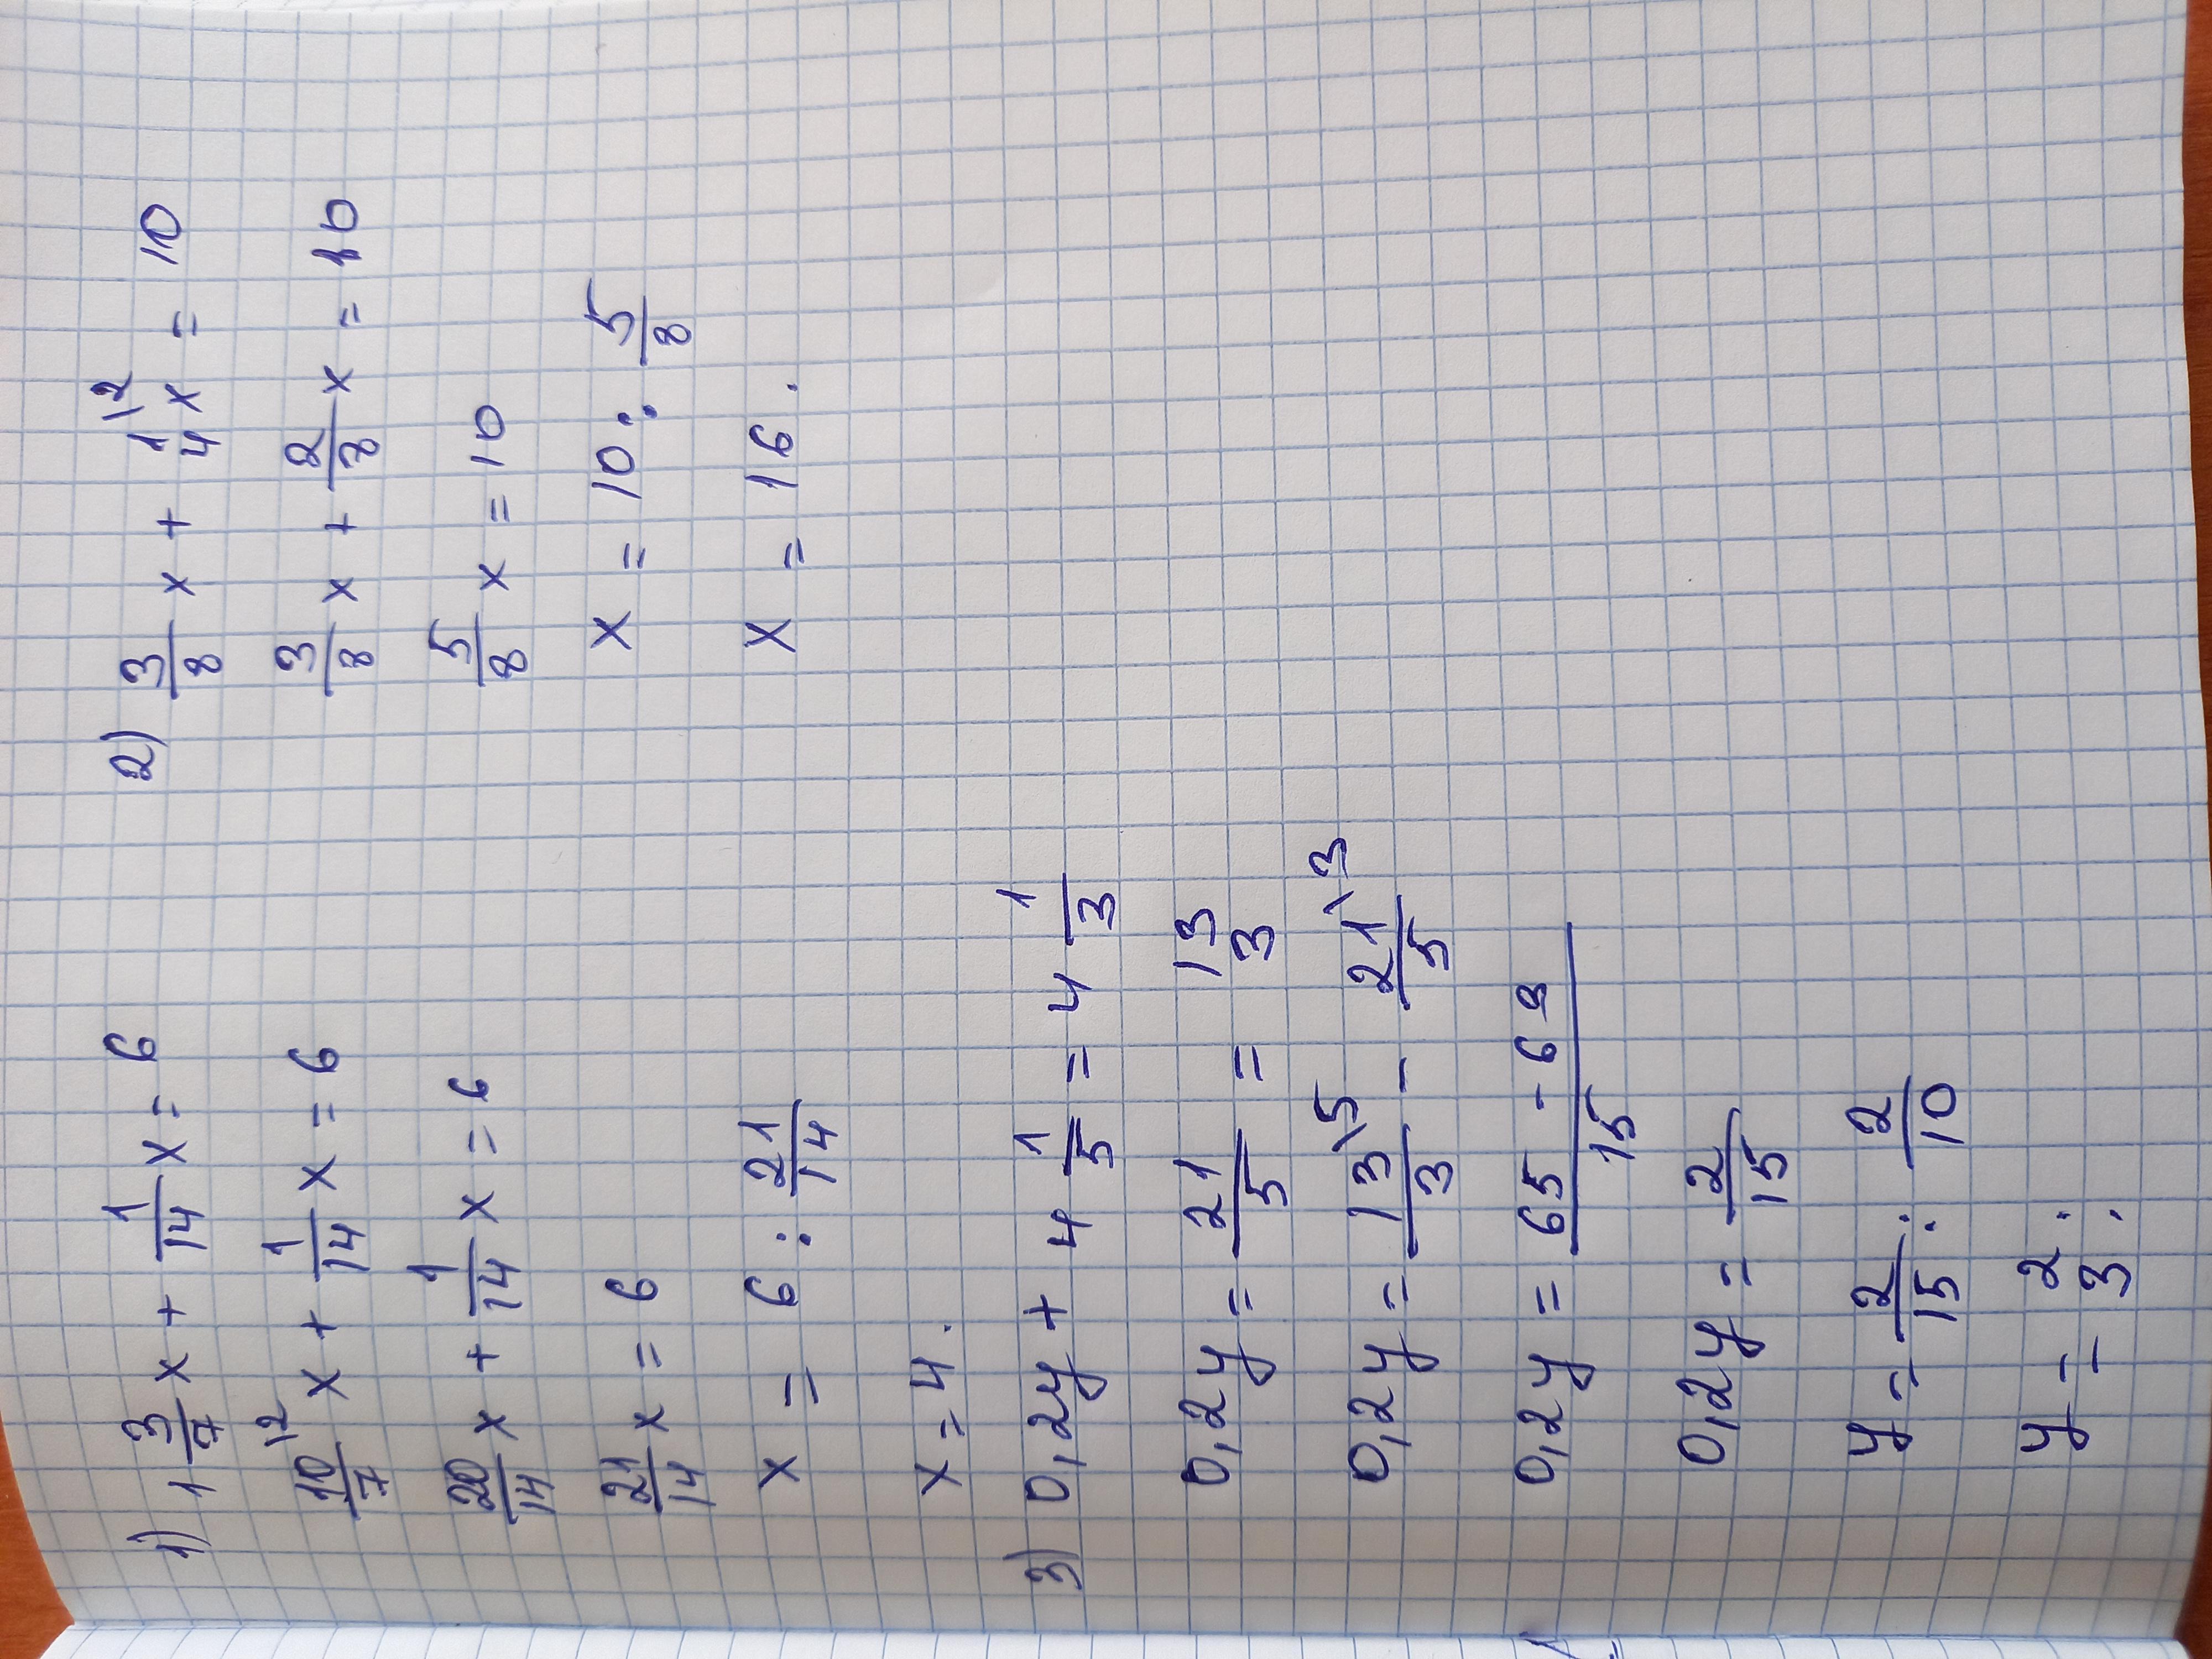 1) 1 3/7 x + 1/14 x = 6
10/7 \2 x + 1/14 x = 6
20/14 x + 1/14 x = 6
21/14 x = 6
x = 6 : 21/14
x = 4.
2) 3/8 x + 1/4 \2 x = 10
3/8 x + 2/8 x = 10
5/8 x = 10
x = 10 : 5/8
x = 16.
3) 0,2y + 4 1/5 = 4 1/3
0,2y = 21/5 = 13/3
0,2y = 13/3 \5 - 21/5 \3
0,2y = 65 - 63/15
0,2y = 2/15
y = 2/15 : 2/10
y = 2/3 .